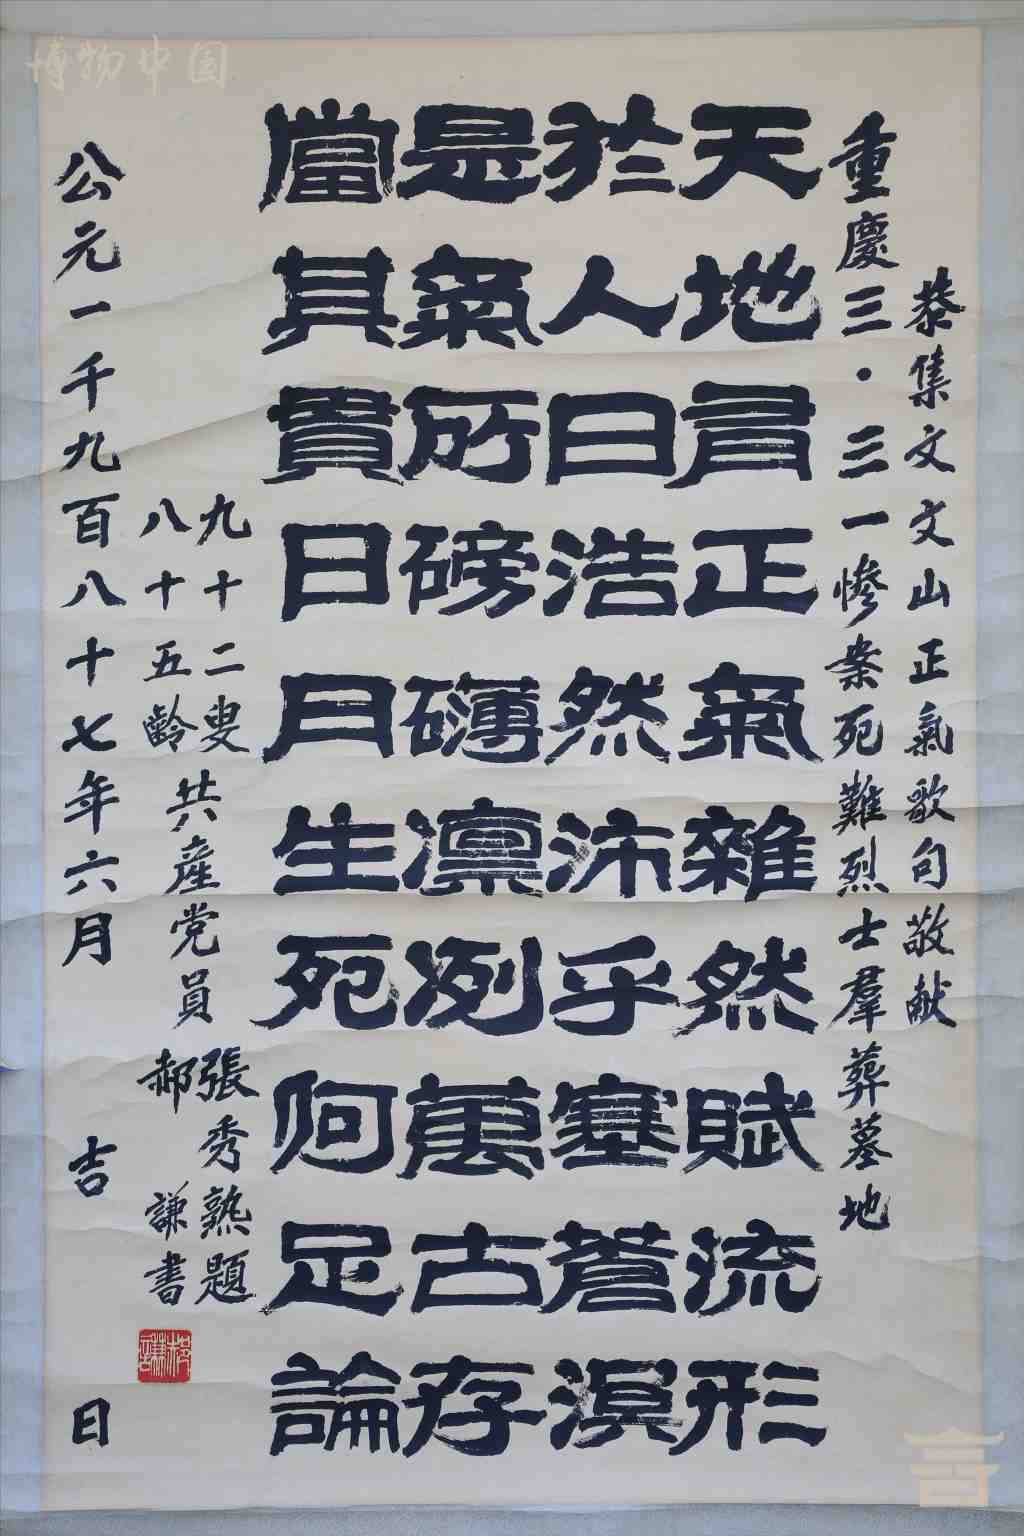 恭集文文山正氣歌句敬献
重慶三·三一慘案死難烈士羣葬墓地
天地有正氣雜然賦流形
於人曰浩然沛乎塞蒼溟
是氣所磅礴凛冽萬古存
當其貫日月生死何足論
九十二叟
八十五齡
共產党員
張秀熟題
郝謙書
公元一千九百八十七年六月吉日
博物中国